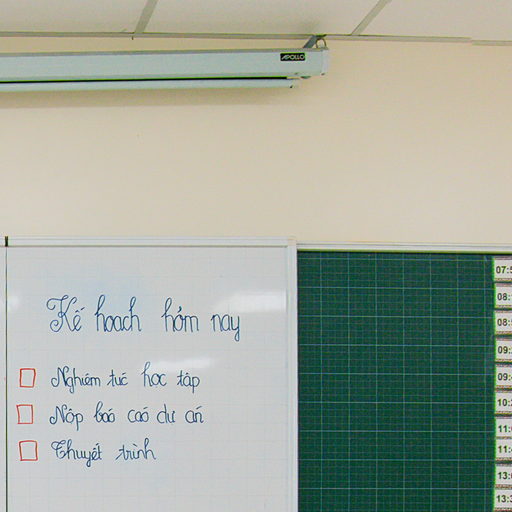 APOLLO
Kế hoach hôm nay
Nghiêm túc học tâp
Nôp báo cáo dư án
Thuyết trình
07:5
08:
08:5
09:
09:4
10:2
11:0
11:4
13:0
13:3